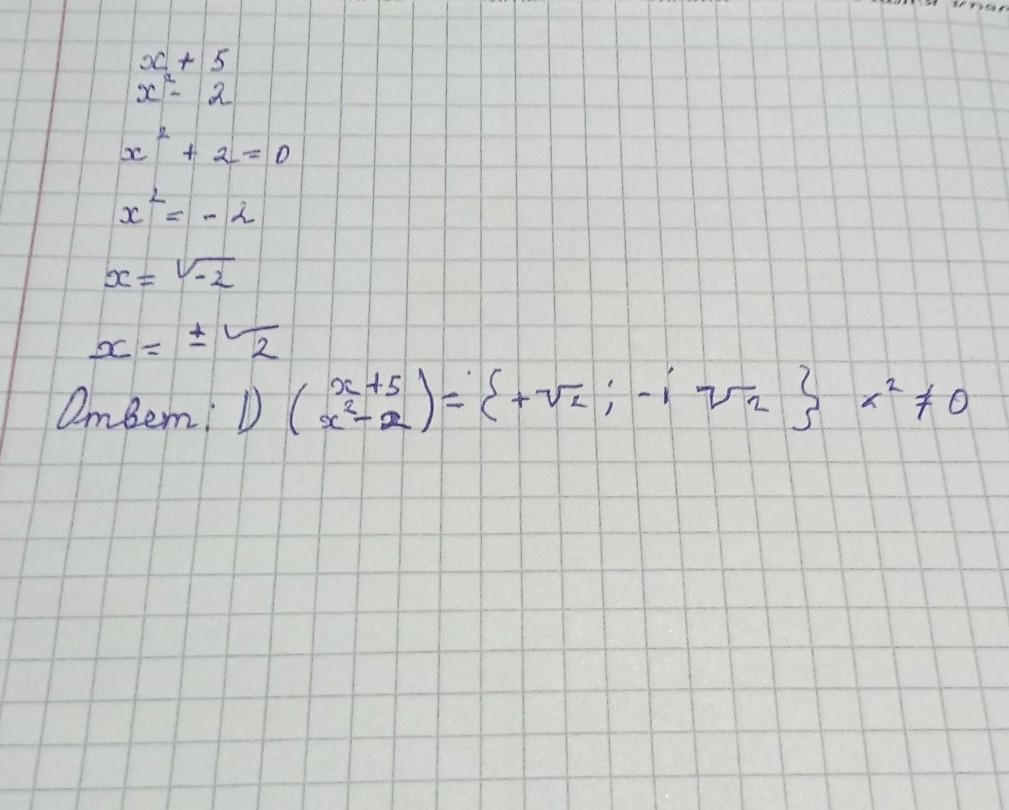 x + 5
x² - 2
x² + 2 = 0
x² = - 2
x = √-2
x = ± √2
Ответ: D (x+5 x²-2) = {+√2 ; -i √2} x² ≠ 0